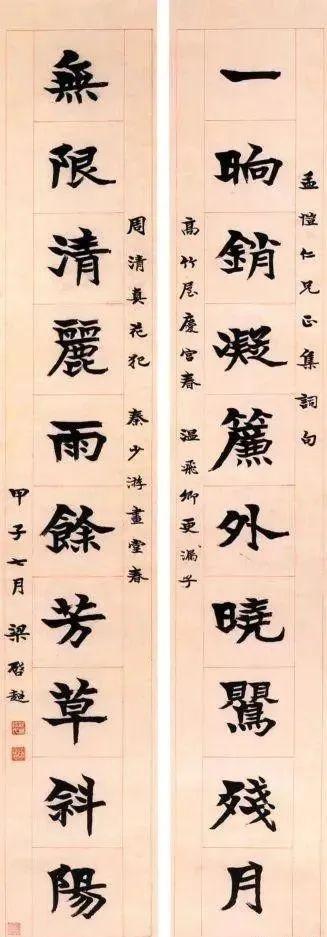 孟愷仁兄正集詞句
一晌銷凝簾外曉鸎殘月
高竹屋慶宮春 温飛卿更漏子
周清真花犯 秦少游畫堂春
無限清麗雨餘芳草斜陽
甲子七月 梁啓超